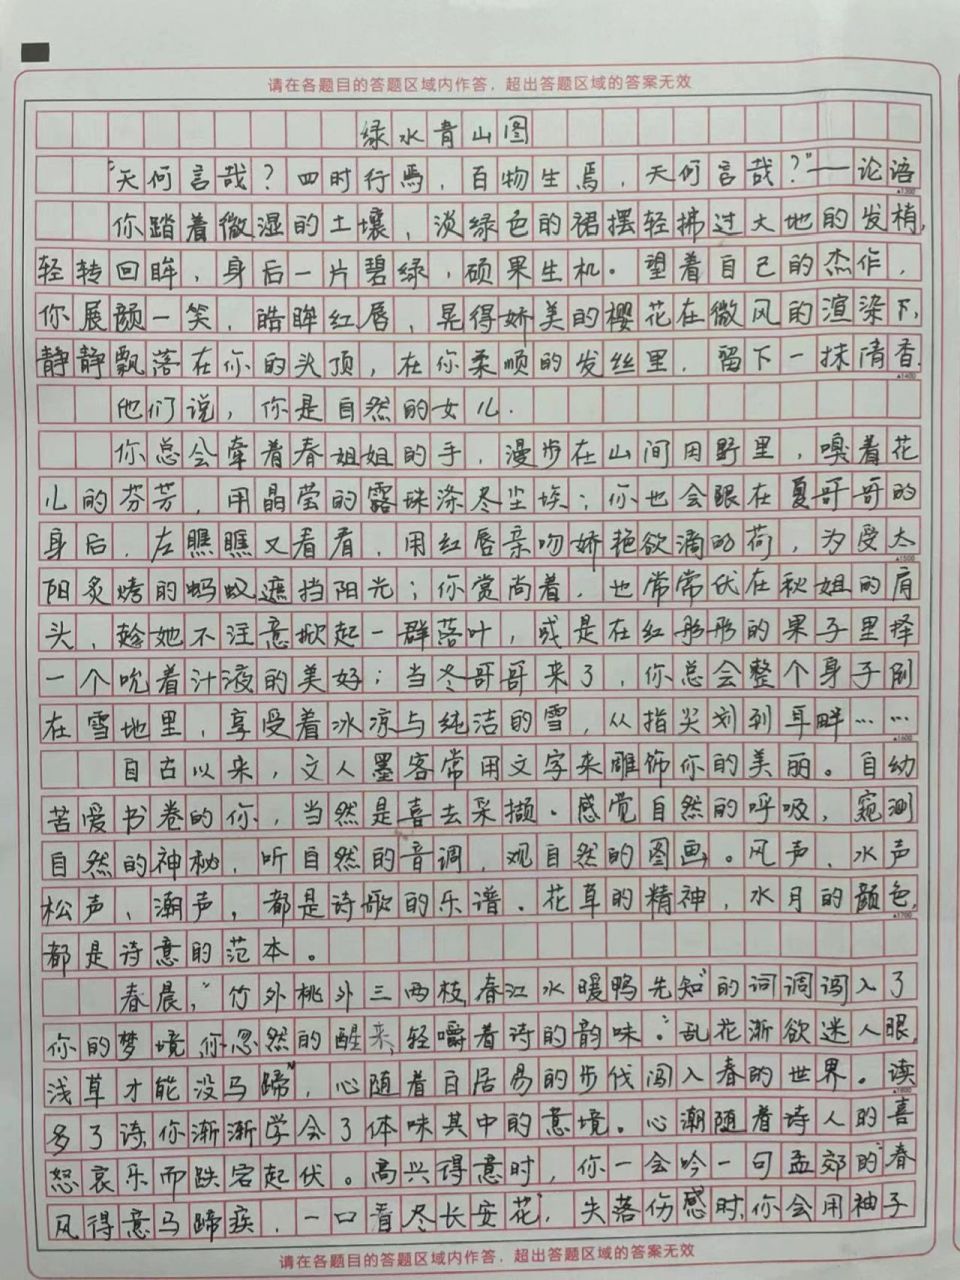 请在各题目的答题区域内作答，超出答题区域的答案无效
绿水青山图
“天何言哉？四时行焉，百物生焉，天何言哉？”——论语
你踏着微湿的土壤，淡绿色的裙摆轻拂过大地的发梢，
轻转回眸，身后一片碧绿，硕果生机。望着自己的杰作，
你展颜一笑，皓眸红唇，晃得娇美的樱花在微风的渲染下，
静静飘落在你的头顶，在你柔顺的发丝里，留下一抹清香.
他们说，你是自然的女儿.
你总会牵着春姐姐的手，漫步在山间田野里，嗅着花
儿的芬芳，用晶莹的露珠涤尽尘埃；你也会跟在夏哥哥的
身后，左瞧瞧又看看，用红唇亲吻娇艳欲滴的荷，为受太
阳炙烤的蚂蚁遮挡阳光；你赏尚着，也常常伏在秋姐的肩
头，趁她不注意掀起一群落叶，或是在红彤彤的果子里择
一个吮着汁液的美好；当冬哥哥来了，你总会整个身子刷
在雪地里，享受着冰凉与纯洁的雪，从指尖划到耳畔……
自古以来，文人墨客常用文字来雕饰你的美丽。自幼
苦爱书卷的你，当然是喜去采撷.感觉自然的呼吸，窥测
自然的神秘，听自然的音调，观自然的图画。风声、水声
松声、潮声，都是诗歌的乐谱.花草的精神，水月的颜色，
都是诗意的范本。
春晨，“竹外桃外三两枝，春江水暖鸭先知”的词调闯入了
你的梦境，你忽然的醒来，轻嚼着诗的韵味.“乱花渐欲迷人眼，
浅草才能没马蹄”，心随着白居易的步伐闯入春的世界。读
多了诗，你渐渐学会了体味其中的意境。心潮随着诗人的喜
怒哀乐而跌宕起伏。高兴得意时，你一会吟一句孟郊的“春
风得意马蹄疾，一口看尽长安花”，失落伤感时，你会用袖子
请在各题目的答题区域内作答，超出答题区域的答案无效